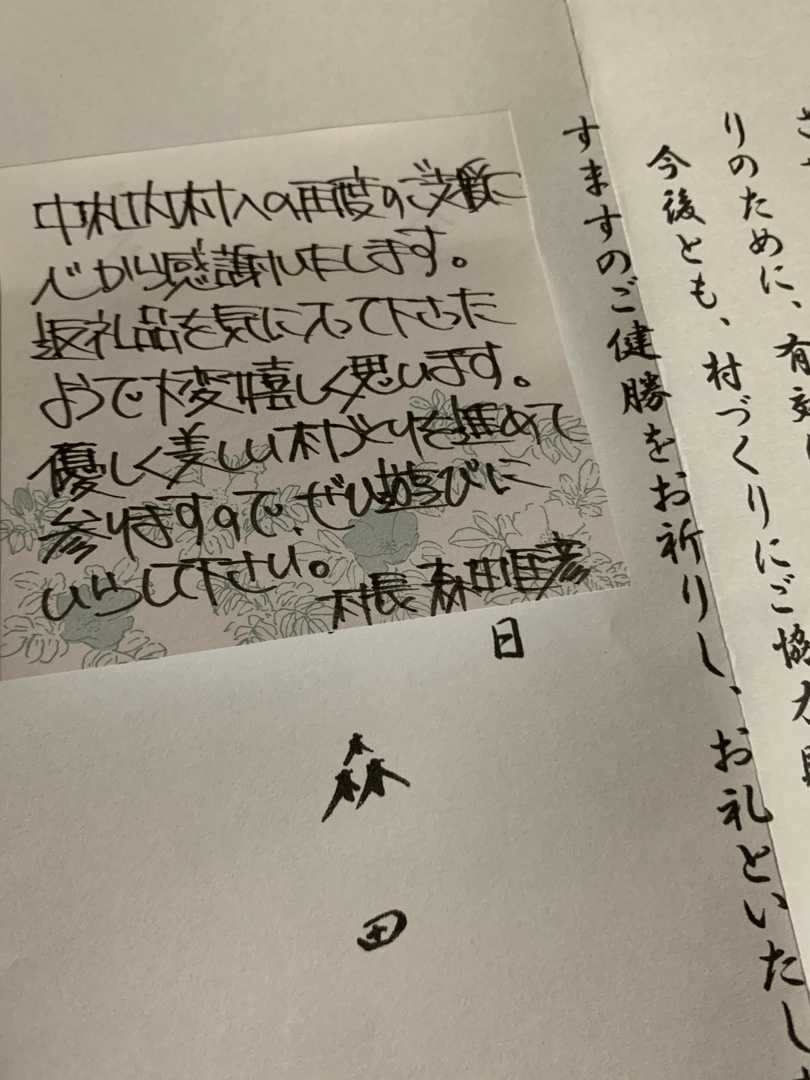 中札内村への再度のご支援に
心から感謝いたします。
返礼品を気に入って下さった
ようで大変嬉しく思います。
優しく美しい村づくりを進めて
参りますので、ぜひ遊びに
いらして下さい。
村長 森田匡彦
りのために、有効に
今後とも、村づくりにご協力
すますのご健勝をお祈りし、お礼といたし
日
森
田